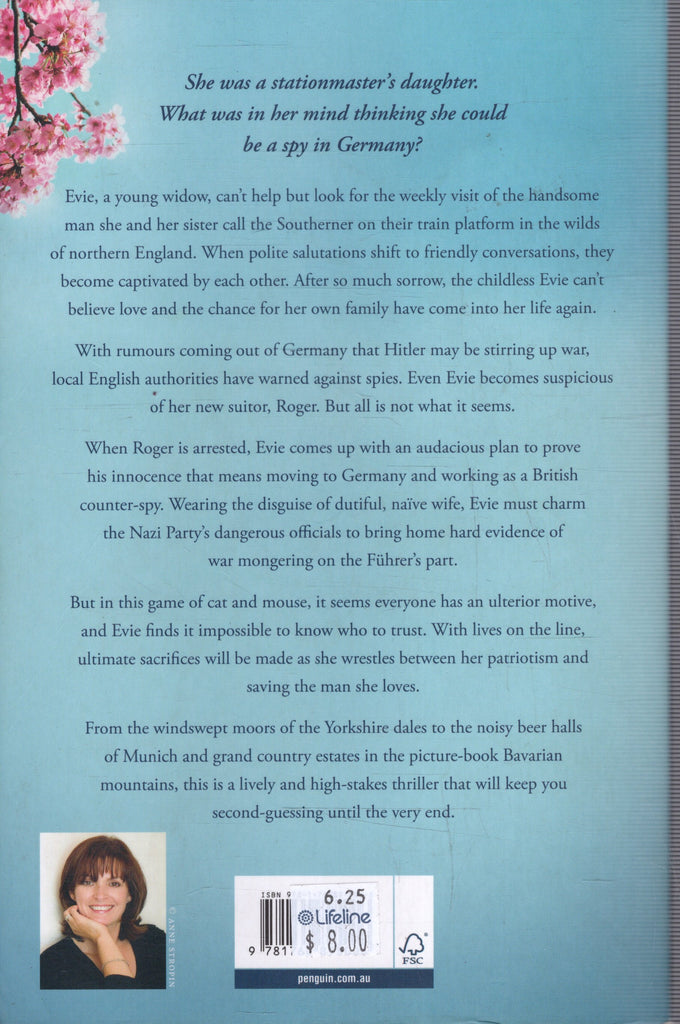 She was a stationmaster's daughter.
What was in her mind thinking she could
be a spy in Germany?
Evie, a young widow, can't help but look for the weekly visit of the handsome
man she and her sister call the Southerner on their train platform in the wilds
of northern England. When polite salutations shift to friendly conversations, they
become captivated by each other. After so much sorrow, the childless Evie can't
believe love and the chance for her own family have come into her life again.
With rumours coming out of Germany that Hitler may be stirring up war,
local English authorities have warned against spies. Even Evie becomes suspicious
of her new suitor, Roger. But all is not what it seems.
When Roger is arrested, Evie comes up with an audacious plan to prove
his innocence that means moving to Germany and working as a British
counter-spy. Wearing the disguise of dutiful, naïve wife, Evie must charm
the Nazi Party's dangerous officials to bring home hard evidence of
war mongering on the Führer's part.
But in this game of cat and mouse, it seems everyone has an ulterior motive,
and Evie finds it impossible to know who to trust. With lives on the line,
ultimate sacrifices will be made as she wrestles between her patriotism and
saving the man she loves.
From the windswept moors of the Yorkshire dales to the noisy beer halls
of Munich and grand country estates in the picture-book Bavarian
mountains, this is a lively and high-stakes thriller that will keep you
second-guessing until the very end.
© ANNE STROPIN
ISBN 9
6.25
Lifeline
$ 8.00
9 781
FSC
penguin.com.au